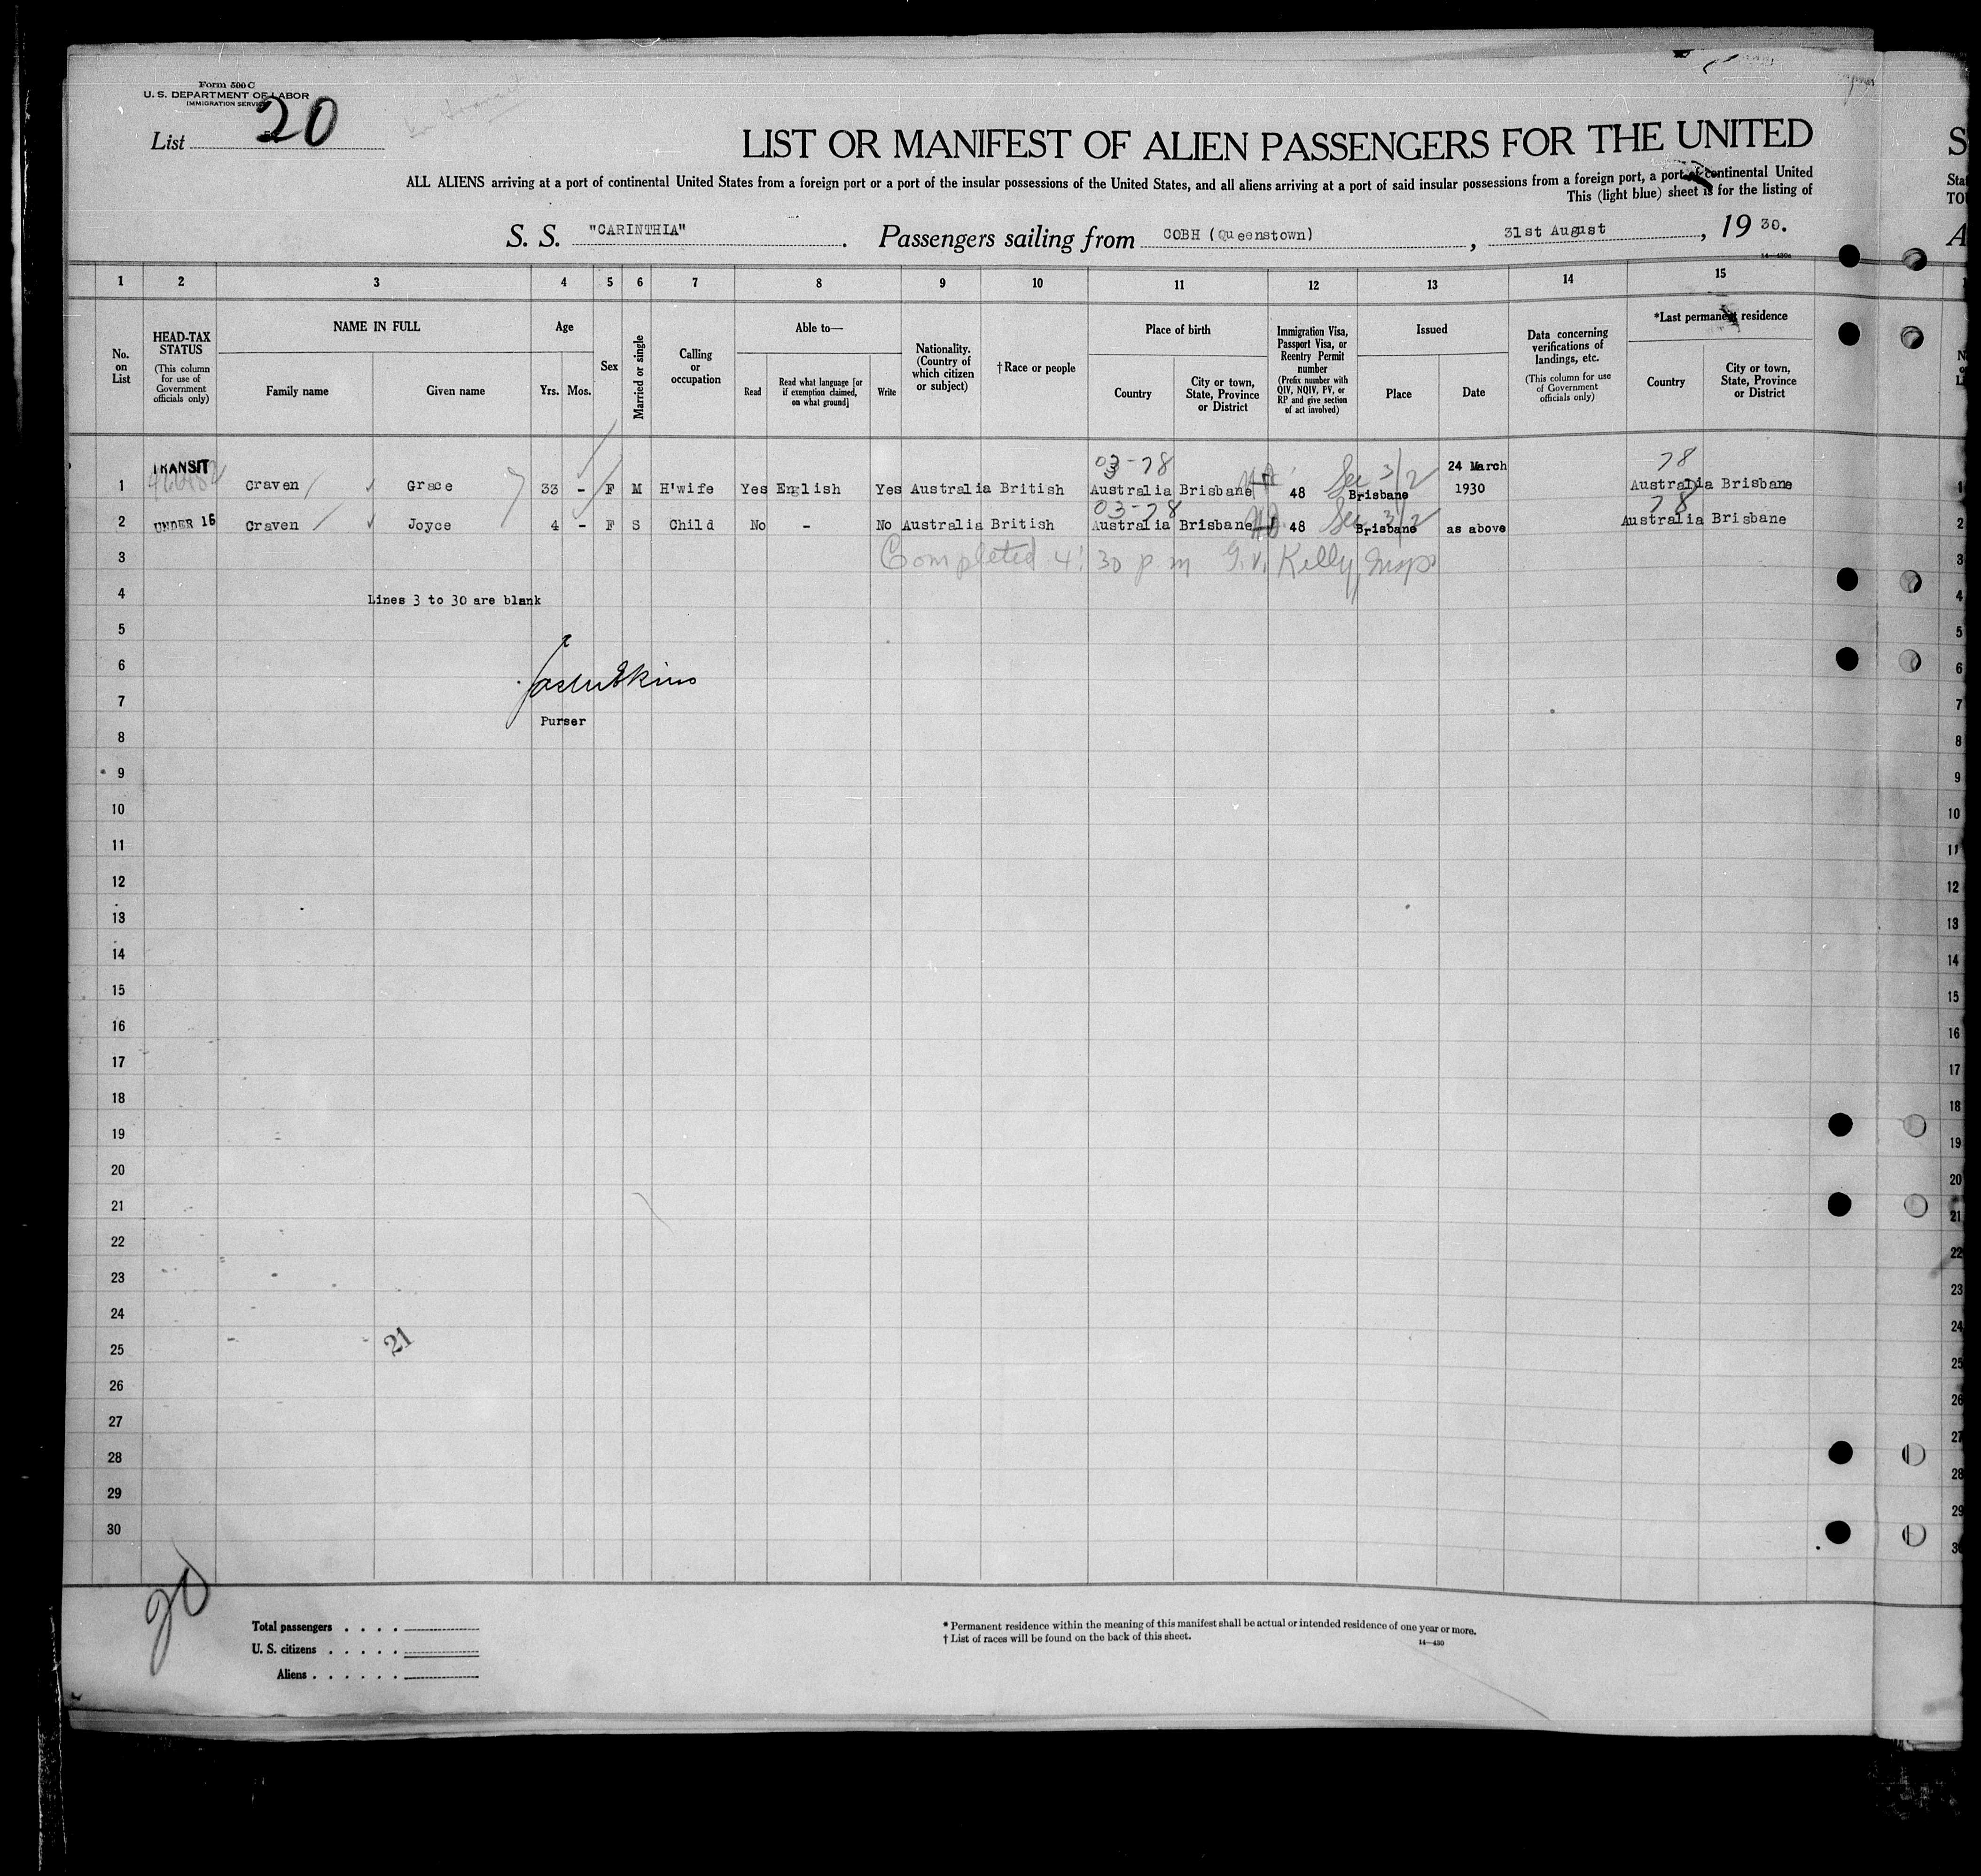 Form 500 C
U. S. DEPARTMENT OF LABOR
IMMIGRATION SERVICE
List 20
LIST OR MANIFEST OF ALIEN PASSENGERS FOR THE UNITED
ALL ALIENS arriving at a port of continental United States from a foreign port or a port of the insular possessions of the United States, and all aliens arriving at a port of said insular possessions from a foreign port, a port of continental United
This (light blue) sheet is for the listing of
S. S. "CARINTHIA". Passengers sailing from COBH (Queenstown), 31st August, 19 30.
1 2 3 4 5 6 7 8 9 10 11 12 13 14 15
No. on List
HEAD-TAX STATUS (This column for use of Government officials only)
NAME IN FULL
Family name
Given name
Age
Yrs. Mos.
Sex
Married or single
Calling or occupation
Able to—
Read
Read what language [or if exemption claimed, on what ground]
Write
Nationality. (Country of which citizen or subject)
†Race or people
Place of birth
Country
City or town, State, Province or District
Immigration Visa, Passport Visa, or Reentry Permit number (Prefix number with QIV, NQIV, PV, or RP and give section of act involved)
Issued
Place
Date
Data concerning verifications of landings, etc. (This column for use of Government officials only)
*Last permanent residence
Country
City or town, State, Province or District
03-78 24 March 78
1 TRANSIT Craven Grace 33 - F M H'wife Yes English Yes Australia British Australia Brisbane 48 Sec 3/2 Brisbane 1930 Australia Brisbane
03-78 78
2 UNDER 16 Craven Joyce 4 - F S Child No - No Australia British Australia Brisbane 48 Sec 3/2 Brisbane as above Australia Brisbane
3 Completed 4:30 p m G.V. Kelly, Insp
4 Lines 3 to 30 are blank
5
6
7
Purser
8
9
10
11
12
13
14
15
16
17
18
19
20
21
22
23
24
25
21
26
27
28
29
30
20
Total passengers . . . .
U. S. citizens . . . . .
Aliens . . . . . .
* Permanent residence within the meaning of this manifest shall be actual or intended residence of one year or more.
† List of races will be found on the back of this sheet.
14—430